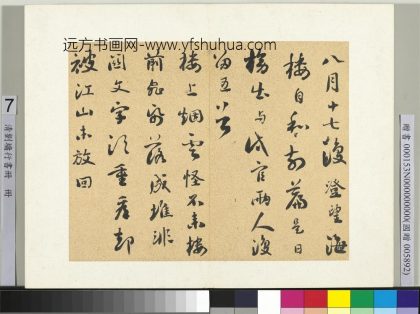 远方书画网-www.yfshuhua.com
八月十七復澄望海
樓日和前篇是日
榜出与試官兩人復
留五首
樓上烟雲怪不來樓
前飛帋落成堆非
關文字須重看却
被江山未放回
7
清劉墉行書冊 冊
贈書 000153N000000000(國贈 005892)